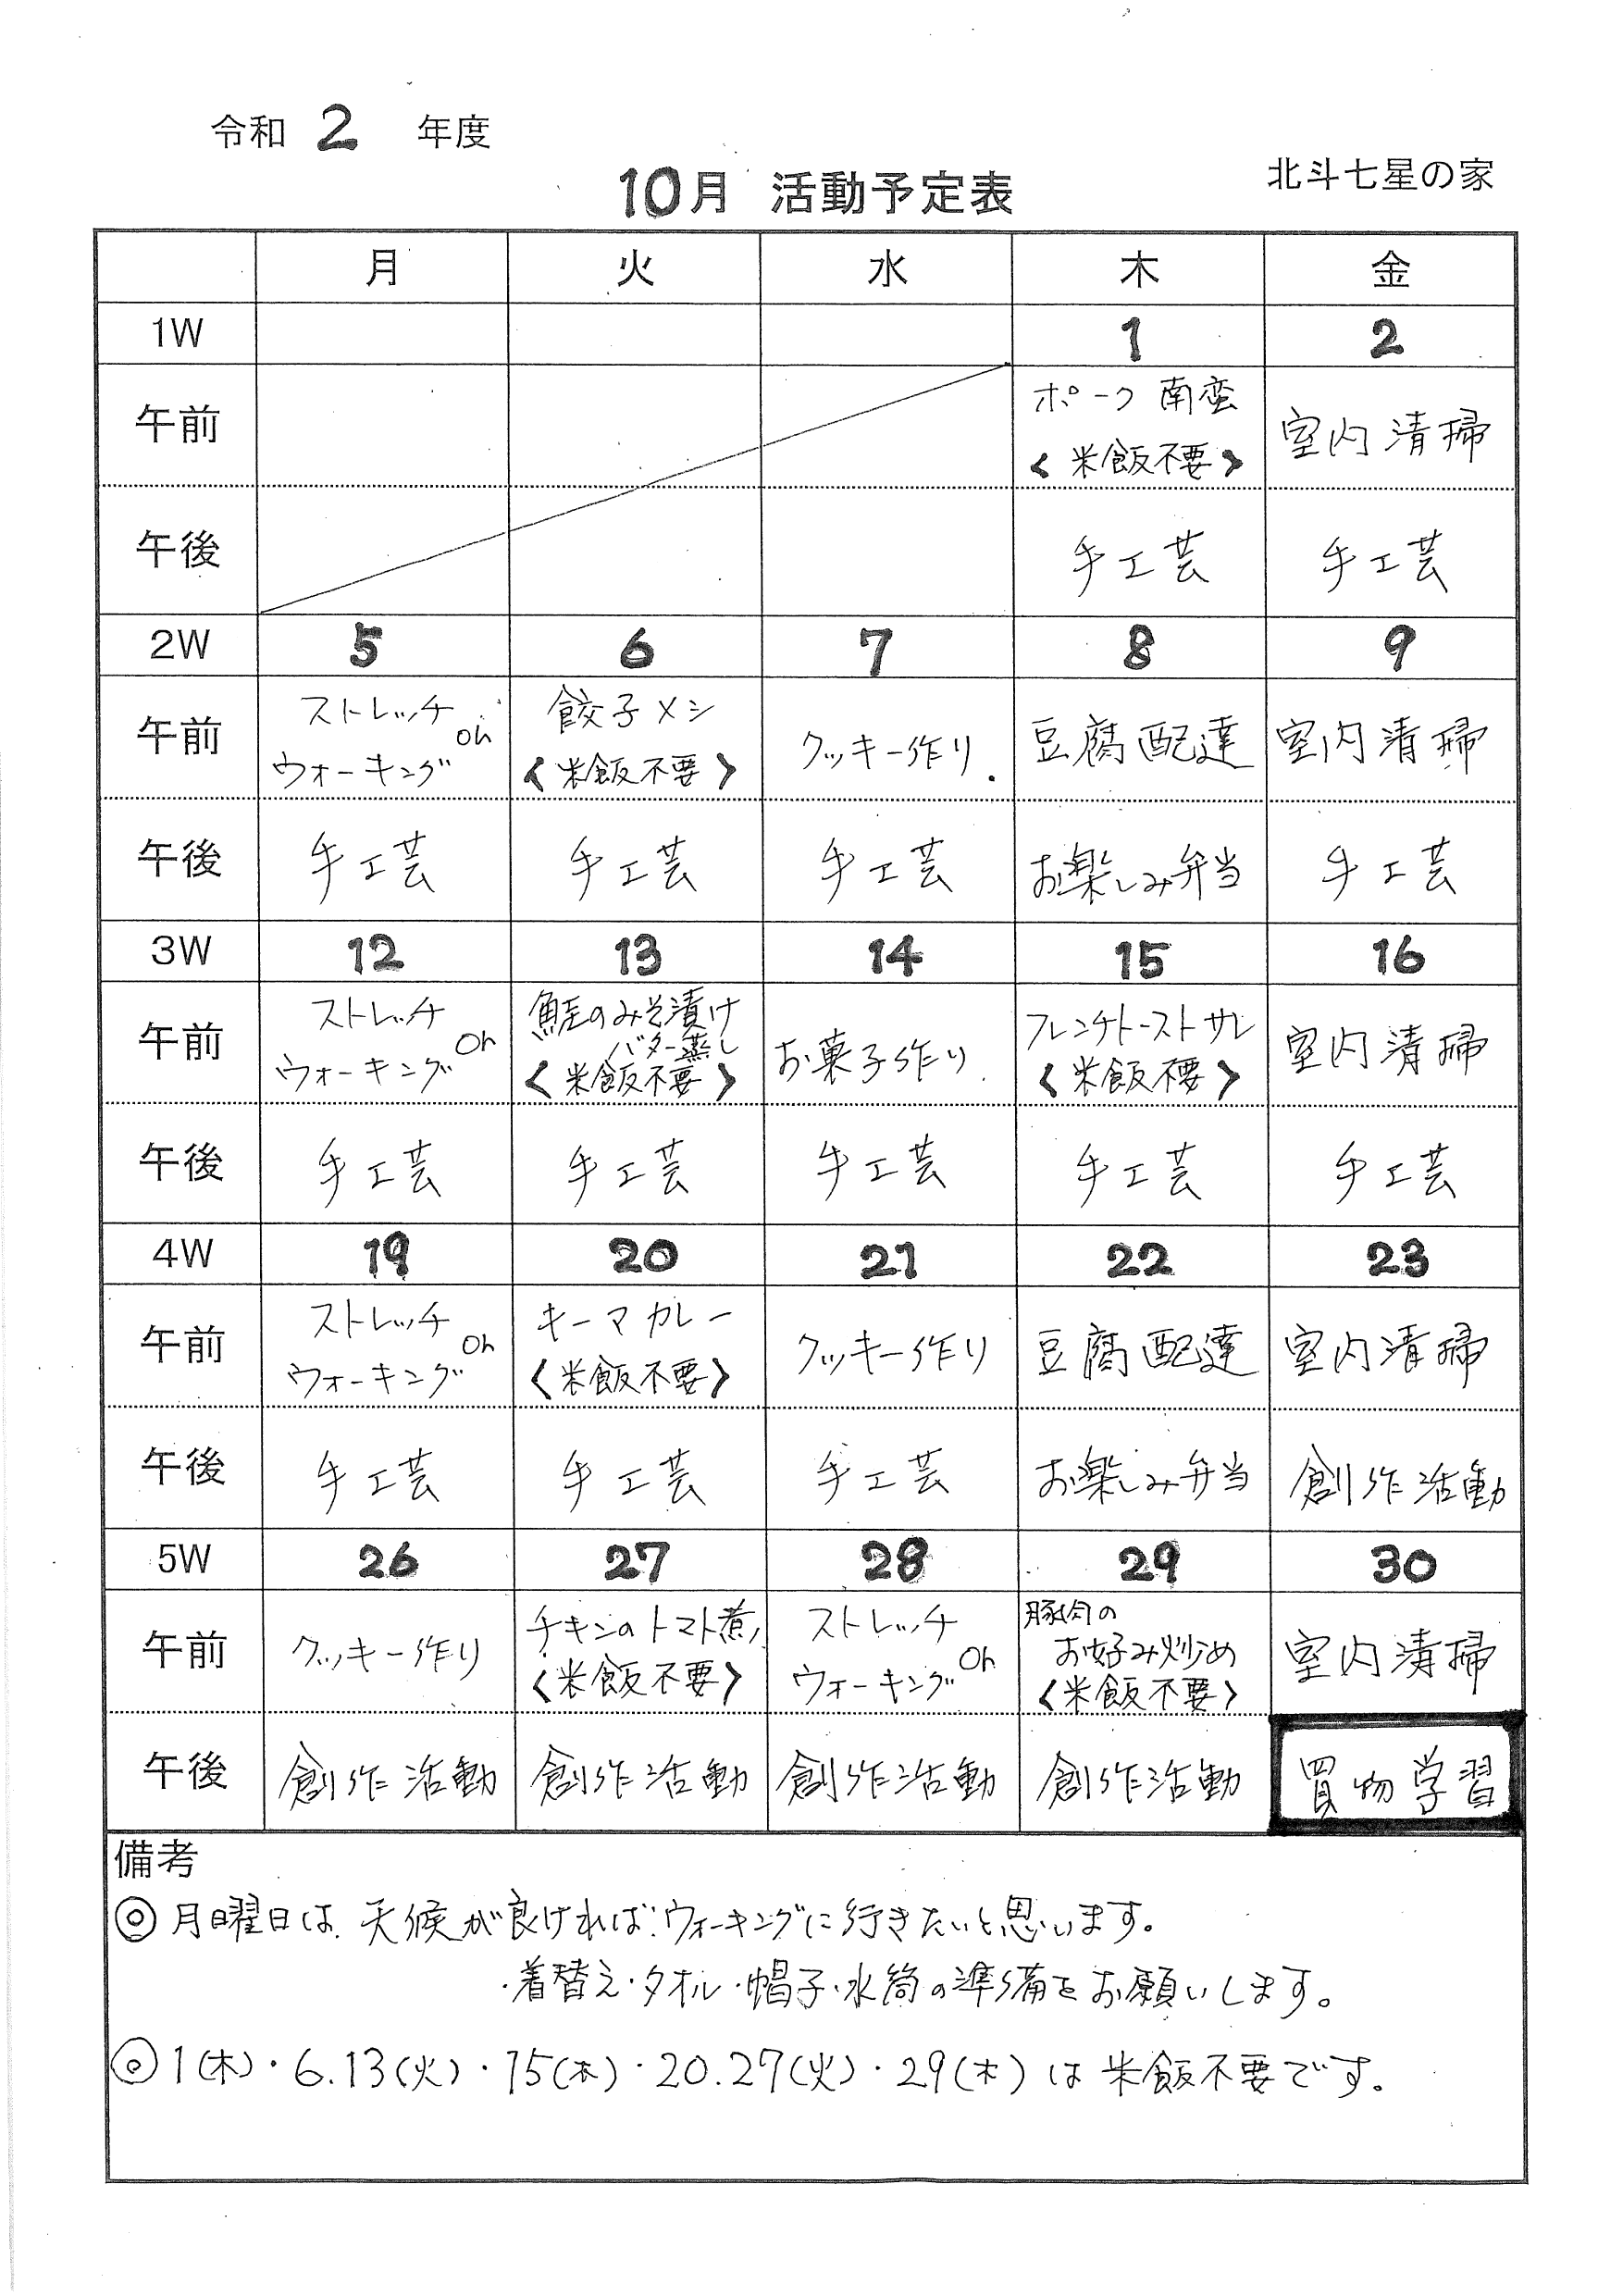 令和 2 年度
北斗七星の家
10月 活動予定表
月 火 水 木 金
1W 1 2
午前 ポーク南蛮 室内清掃
<米飯不要>
午後 手工芸 手工芸
2W 5 6 7 8 9
午前 ストレッチ oh ウォーキング 餃子メシ <米飯不要> クッキー作り. 豆腐配達 室内清掃
午後 手工芸 手工芸 手工芸 お楽しみ弁当 手工芸
3W 12 13 14 15 16
午前 ストレッチ oh ウォーキング 鮭のみそ漬け バター蒸し <米飯不要> お菓子作り. フレンチトーストサレ <米飯不要> 室内清掃
午後 手工芸 手工芸 手工芸 手工芸 手工芸
4W 19 20 21 22 23
午前 ストレッチ oh ウォーキング キーマカレー <米飯不要> クッキー作り 豆腐配達 室内清掃
午後 手工芸 手工芸 手工芸 お楽しみ弁当 創作活動
5W 26 27 28 29 30
午前 クッキー作り チキンのトマト煮 <米飯不要> ストレッチ oh ウォーキング 豚肉の お好み炒め <米飯不要> 室内清掃
午後 創作活動 創作活動 創作活動 創作活動 買物学習
備考
◎月曜日は、天候が良ければウォーキングに行きたいと思います。
・着替え・タオル・帽子・水筒の準備をお願いします。
◎1(木)・6.13(火)・15(木)・20.27(火)・29(木)は米飯不要です。